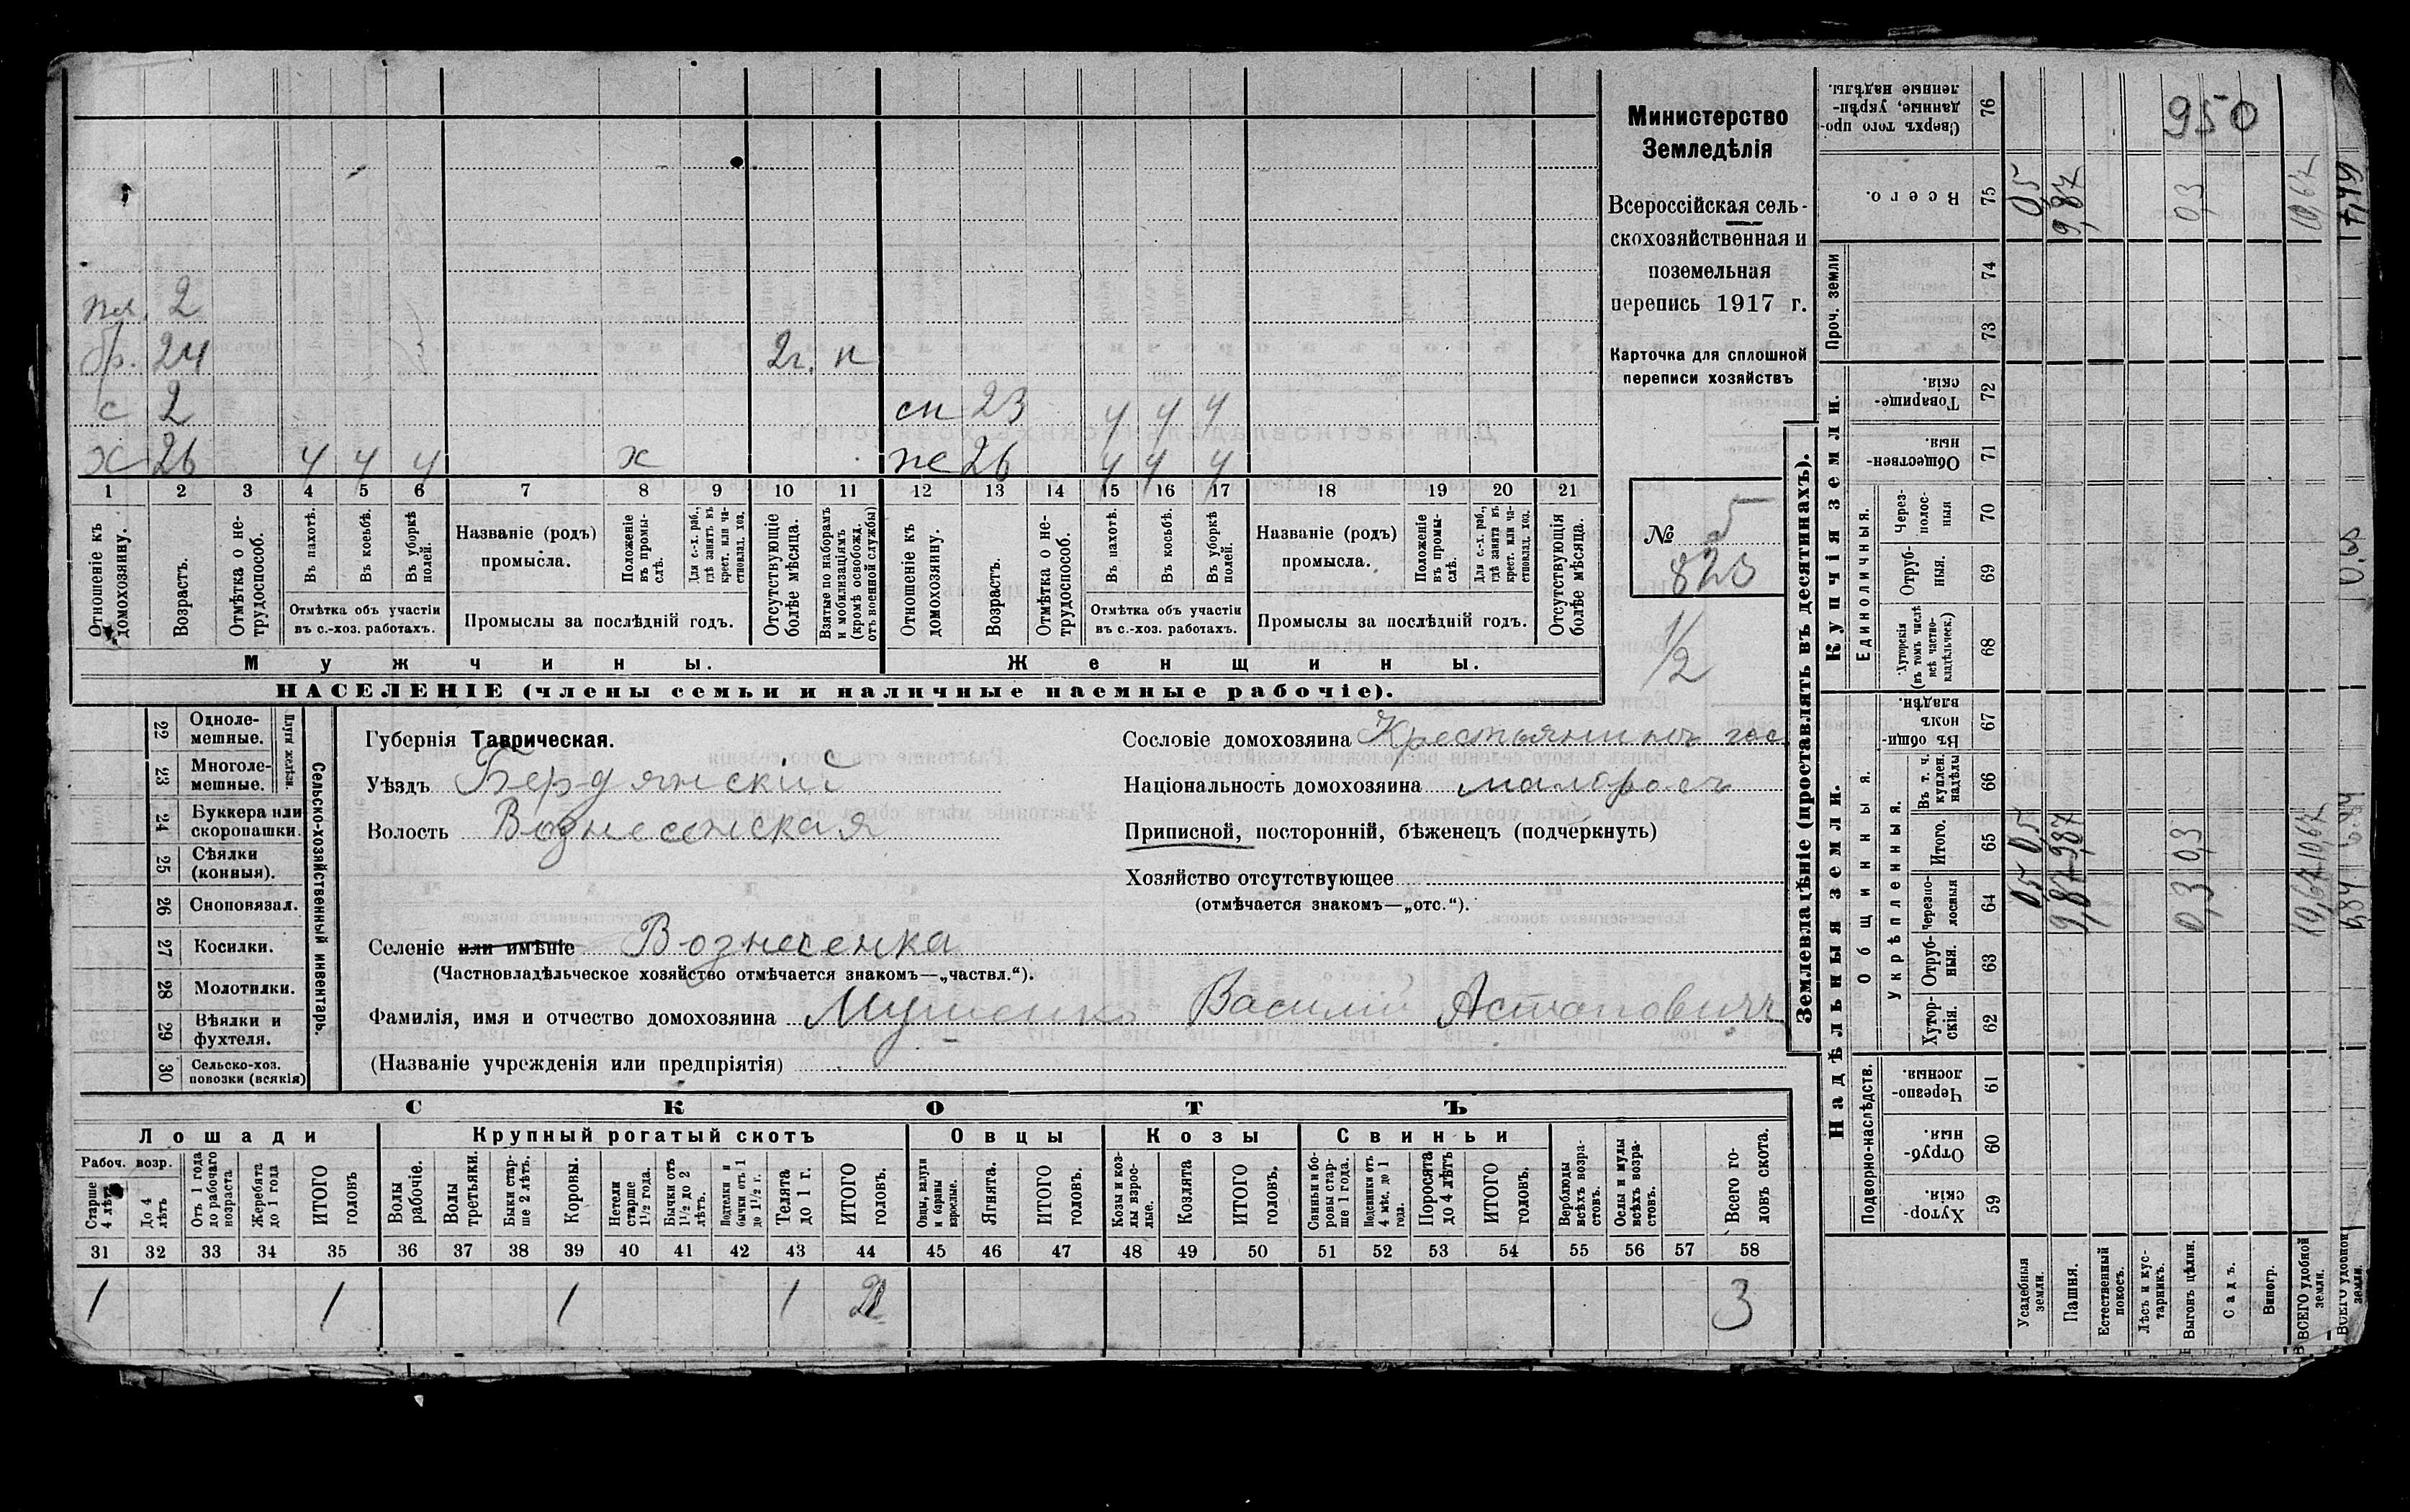 пл. 2
бр. 24 2г. н
с 2 сн 23 ч ч ч
х 26 ч ч ч х же 26 ч ч ч
1 2 3 4 5 6 7 8 9 10 11 12 13 14 15 16 17 18 19 20 21
Отношеніе къ домохозяину.
Возрастъ.
Отмѣтка о не-трудоспособ.
Въ пахотѣ.
Въ косьбѣ.
Въ уборкѣ полей.
Отмѣтка объ участіи
въ с.-хоз. работахъ.
Названіе (родъ)
промысла.
Положеніе въ промы-слѣ.
Для с.-х. раб., гдѣ занятъ въ крест. или ча-стновлад. хоз.
Промыслы за послѣдній годъ.
Отсутствующіе болѣе мѣсяца.
Взятые по наборамъ и мобилизаціямъ (кромѣ освобожд. отъ военной службы)
Отношеніе къ домохозяину.
Возрастъ.
Отмѣтка о не-трудоспособ.
Въ пахотѣ.
Въ косьбѣ.
Въ уборкѣ полей.
Отмѣтка объ участіи
въ с.-хоз. работахъ.
Названіе (родъ)
промысла.
Положеніе въ промы-слѣ.
Для с.-х. раб., гдѣ занята въ крест. или ча-стновлад. хоз.
Промыслы за послѣдній годъ.
Отсутствующія болѣе мѣсяца.
Мужчины. Женщины.
НАСЕЛЕНІЕ (члены семьи и наличные наемные рабочіе).
Министерство
Земледѣлія
Всероссійская сель-
скохозяйственная и
поземельная
перепись 1917 г.
Карточка для сплошной
переписи хозяйствъ
№ 5
823
1/2
Сельско-хозяйственный инвентарь.
Плуги желѣзн.
22 Одноле-мешные.
23 Многоле-мешные.
24 Буккера или скоропашки.
25 Сѣялки (конныя).
26 Сноповязал.
27 Косилки.
28 Молотилки.
29 Вѣялки и фухтеля.
30 Сельско-хоз. повозки (всякія)
Губернія Таврическая.
Уѣздъ Бердянскій
Волость Вознесенская
Селеніе или имѣніе Вознесенка
(Частновладѣльческое хозяйство отмѣчается знакомъ—„частвл.“).
Фамилія, имя и отчество домохозяина Мушенко Василий Астаповичъ
(Названіе учрежденія или предпріятія)
Сословіе домохозяина Крестьянинъ гос
Національность домохозяина малоросъ
Приписной, посторонній, бѣженецъ (подчеркнуть)
Хозяйство отсутствующее
(отмѣчается знакомъ—„отс.“).
СКОТЪ
Лошади Крупный рогатый скотъ Овцы Козы Свиньи
Рабоч. возр.
Старше 4 лѣтъ
До 4 лѣтъ
Отъ 1 года до рабочаго возраста
Жеребята до 1 года
ИТОГО головъ
Волы рабочіе.
Волы третьяки.
Быки стар-ше 2 лѣтъ.
Коровы.
Нетели старше 1½ года.
Бычки отъ 1½ до 2 лѣтъ.
Подтелки и бычки отъ 1 до 1½ г.
Телята до 1 г.
ИТОГО головъ.
Овцы, валухи и бараны взрослые.
Ягнята.
ИТОГО головъ.
Козы и коз-лы взрос-лые.
Козлята
ИТОГО головъ.
Свиньи и бо-ровы стар-ше 1 года.
Подсвинки отъ 4 мѣс. до 1 года.
Поросята до 4 лѣтъ
ИТОГО головъ.
Верблюды всѣхъ возра-стовъ.
Ослы и мулы всѣхъ возра-стовъ.
Всего го-ловъ скота.
31 32 33 34 35 36 37 38 39 40 41 42 43 44 45 46 47 48 49 50 51 52 53 54 55 56 57 58
1 1 1 1 2 3
Землевладѣніе (проставлять въ десятинахъ).
Надѣльныя земли.
Купчія земли.
Проч. земли
Подворно-наслѣдств.
Общинныя.
Укрѣпленныя.
Единоличныя.
Сверхъ того про-данные, укрѣп-ленные надѣлы. 76
Всего. 75
74
73
Товарище-скія. 72
Обществен-ныя. 71
Через-полос-ныя 70
Отруб-ныя. 69
Хуторскія (въ томъ числѣ всѣ частно-владѣльческ.) 68
Въ общин-номъ владѣн. 67
Въ т. ч. куплен. надѣлы 66
Итого. 65
Черезпо-лосныя 64
Отруб-ныя. 63
Хутор-скія. 62
Черезпо-лосныя. 61
Отруб-ныя. 60
Хутор-скія 59
Усадебныя земли. 0,5 0,5 0,5
Пашня. 9,87 9,87 9,87
Естественный покосъ.
Лѣсъ и кус-тарникъ.
Выгонъ цѣлин. 0,3 0,3 0,3
950
Садъ.
Виногр.
ВСЕГО удобной земли. 10,67 10,67 10,67
ВСЕГО удобной земли. 6,84 6,84 0,65 7,49